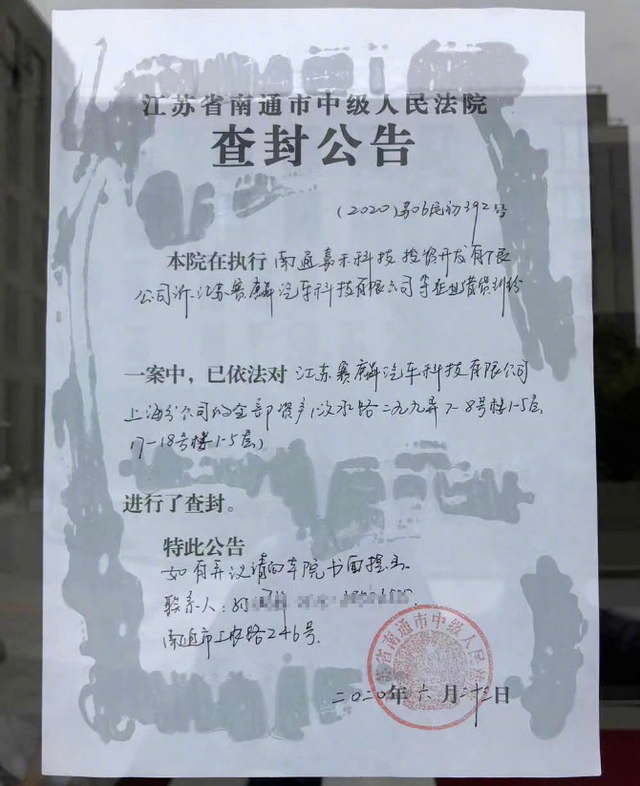 江苏省南通市中级人民法院
查封公告
(2020)苏06民初392号
本院在执行 南通嘉禾科技投资开发有限
公司诉江苏赛麟汽车科技有限公司等企业借贷纠纷
一案中，已依法对 江苏赛麟汽车科技有限公司
上海分公司的全部资产(汶水路二九九弄7-8号楼1-5层
17-18号楼1-5层)
进行了查封。
特此公告
如有异议请向本院书面提出
联系人:
南通市工农路246号.
省南通市中级人民法
二〇二〇年六月二十三日